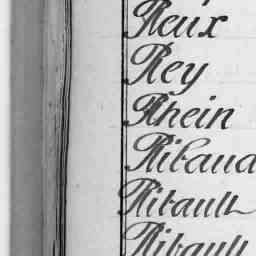 Reux
Rey
Rhein
Ribaud
Ribault
Ribault